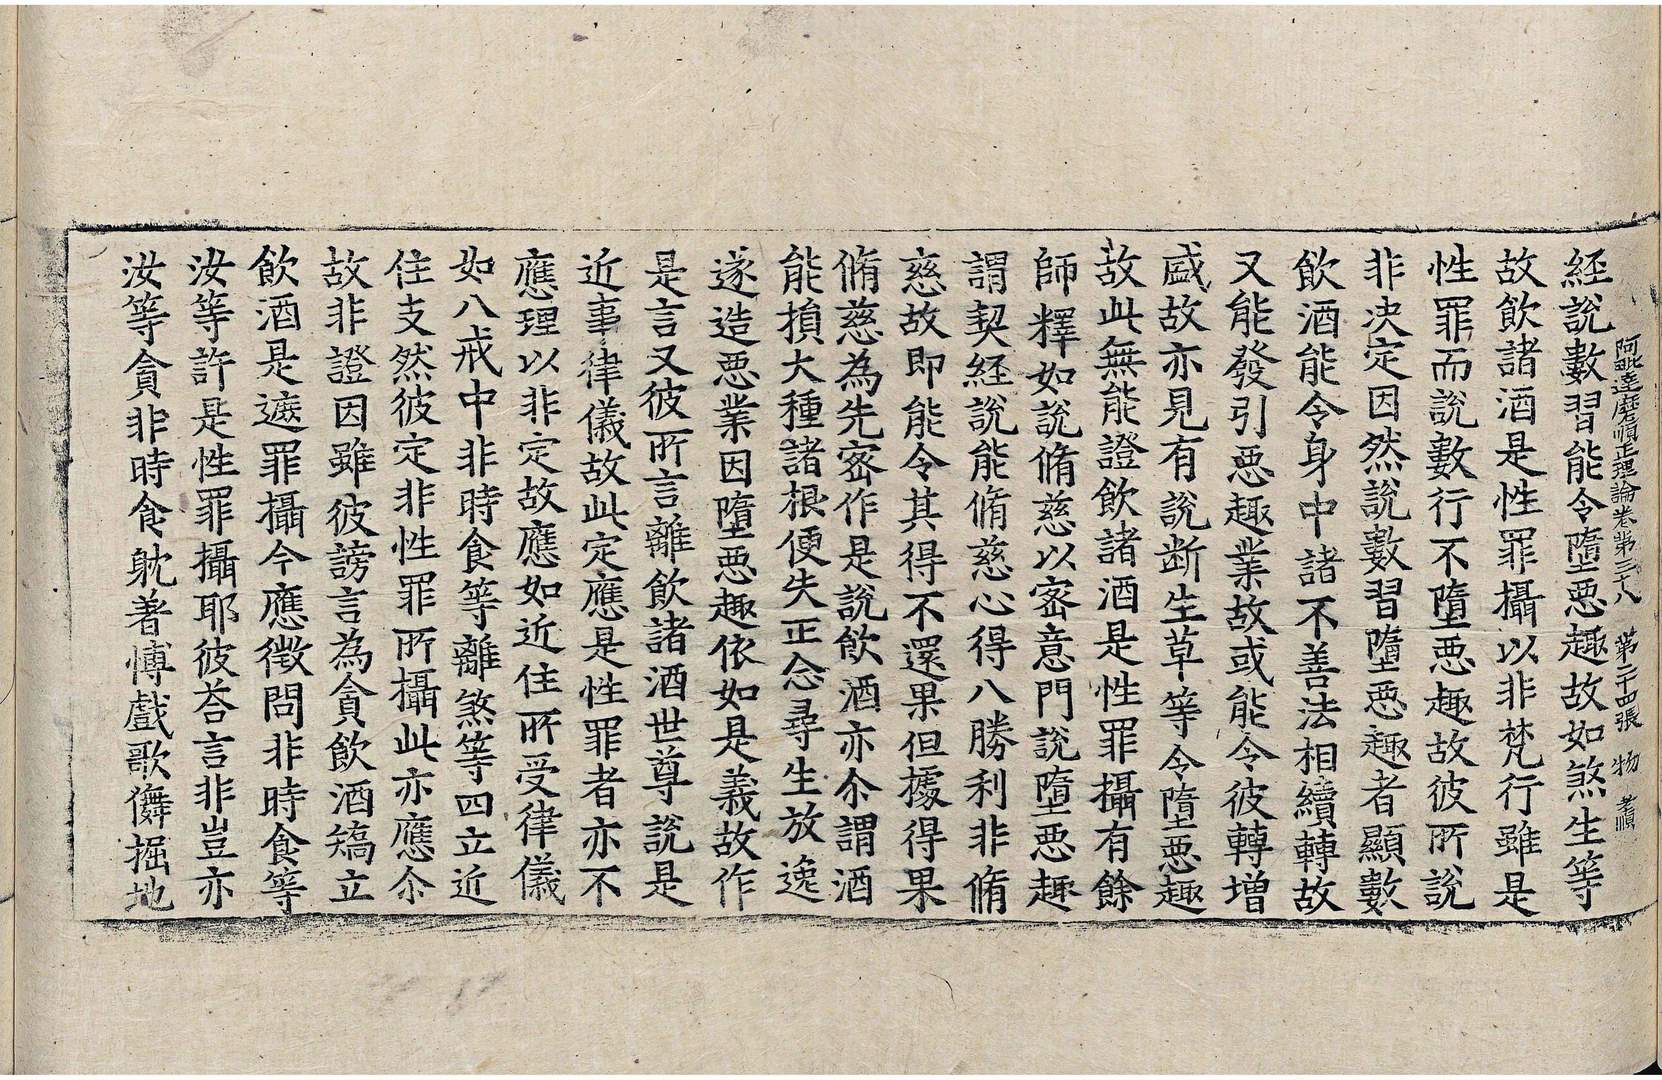 阿毗達磨順正理論卷第三十八　第二十四張　物
經說數習能令墮惡趣故如煞生等
故飲諸酒是性罪攝以非梵行雖是
性罪而說數行不墮惡趣故彼所說
非决定因然說數習墮惡趣者顯數
飲酒能令身中諸不善法相續轉故
又能發引惡趣業故或能令彼轉增
盛故亦見有說断生草等令墮惡趣
故此無能證飲諸酒是性罪攝有餘
師釋如說脩慈以密意門說墮惡趣
謂契經說能脩慈心得八勝利非脩
慈故即能令其得不還果但據得果
脩慈為先密作是說飲酒亦尒謂酒
能損大種諸根便失正念尋生放逸
遂造惡業因墮惡趣依如是義故作
是言又彼所言離飲諸酒世尊說是
近事律儀故此定應是性罪者亦不
應理以非定故應如近住所受律儀
如八戒中非時食等離煞等四立近
住支然彼定非性罪所攝此亦應尒
故非證因雖彼謗言為貪飲酒矯立
飲酒是遮罪攝今應徵問非時食等
汝等許是性罪攝耶彼荅言非豈亦
汝等貪非時食躭著愽戲歌儛掘地